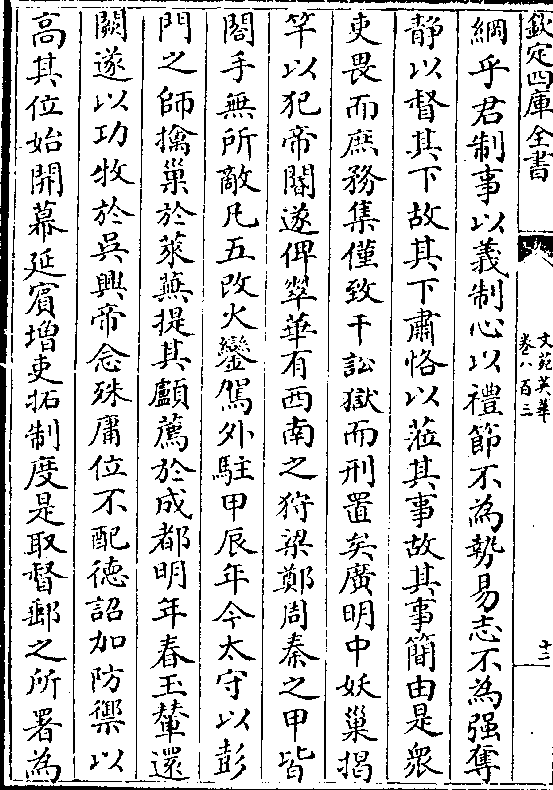 欽定四庫全書
文苑英華
卷八百三
十二
綱乎君制事以義制心以禮節不為勢易志不為强奪
静以督其下故其下肅恪以蒞其事故其事簡由是衆
吏畏而庶務集僅致干訟獄而刑置矣廣明中妖巢揭
竿以犯帝閽遂俾翠華有西南之狩梁鄭周秦之甲皆
閤手無所敵凡五改火鑾駕外駐甲辰年今太守以彭
門之師擒巢於萊蕪提其顱薦於成都明年春王輦還
闕遂以功牧於吳興帝念殊庸位不配德詔加防禦以
高其位始開幕延賓增吏拓制度是取督郵之所署為